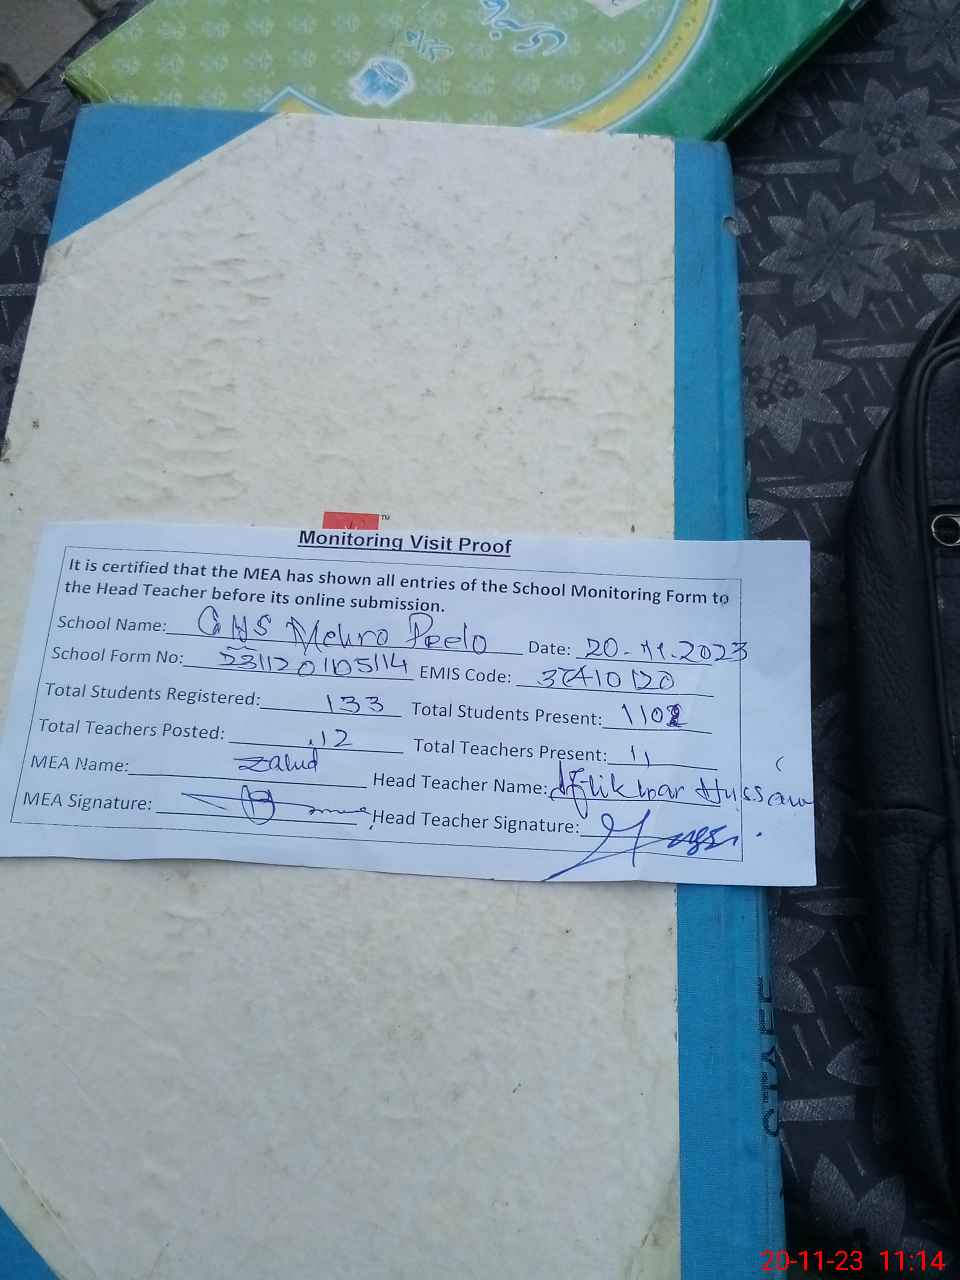 TM
Monitoring Visit Proof
It is certified that the MEA has shown all entries of the School Monitoring Form to
the Head Teacher before its online submission.
School Name: GHS Mehro Peelo Date: 20-11-2023
School Form No: EMIS Code:
Total Students Registered: 133 Total Students Present:
Total Teachers Posted: 12 Total Teachers Present: 11
MEA Name: Zahid Head Teacher Name: Iftikhar Hussain
MEA Signature: Head Teacher Signature:
20-11-23 11:14